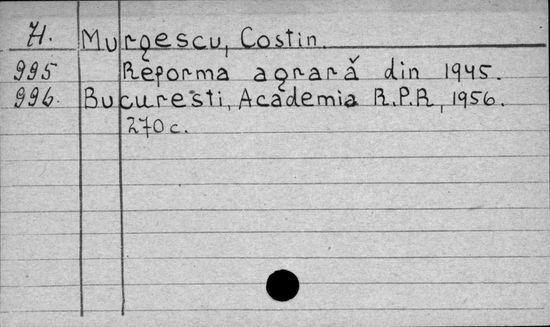 H. Murgescu, Costin.
995 Reforma agrară din 1945.
996. Bucuresti, Academia R.P.R, 1956.
270 c.